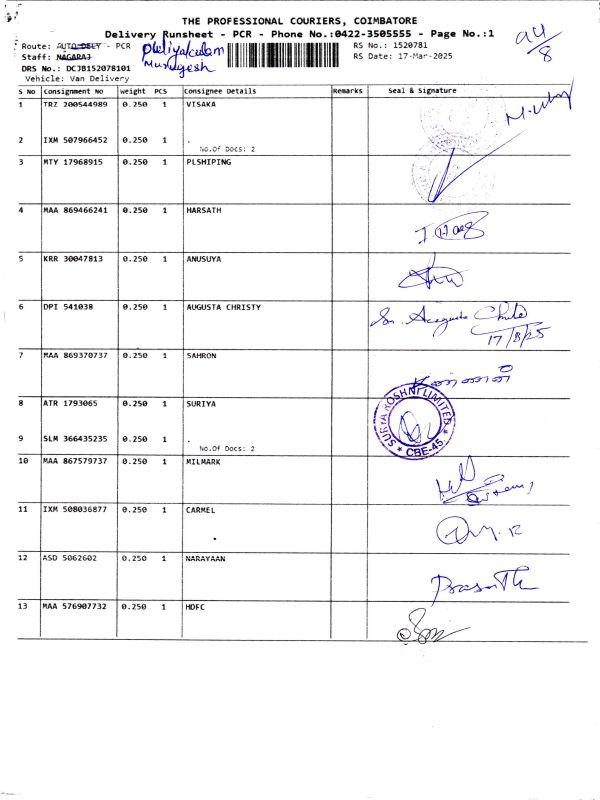 THE PROFESSIONAL COURIERS, COIMBATORE
Delivery Runsheet - PCR - Phone No.:0422-3505555 - Page No.:1
Route: AUTO DELY - PCR Puliyakulam RS No.: 1520781
Staff: NAGARAJ Murugesh RS Date: 17-Mar-2025
DRS No.: DCJB152078101
Vehicle: Van Delivery
S No Consignment No Weight PCS Consignee Details Remarks Seal & Signature
1 TRZ 200544989 0.250 1 VISAKA
2 IXM 507966452 0.250 1 .
No.Of Docs: 2
3 MTY 17968915 0.250 1 PLSHIPING
4 MAA 869466241 0.250 1 HARSATH
5 KRR 30047813 0.250 1 ANUSUYA
6 DPI 541038 0.250 1 AUGUSTA CHRISTY Sr. Augusta
17/3/25
7 MAA 869370737 0.250 1 SAHRON
8 ATR 1793065 0.250 1 SURIYA SURYA ROSHNI LIMITED
* CBE-45. *
9 SLM 366435235 0.250 1 .
No.Of Docs: 2
10 MAA 867579737 0.250 1 MILMARK
11 IXM 508036877 0.250 1 CARMEL
12 ASD 5062602 0.250 1 NARAYAAN Prasanth
13 MAA 576907732 0.250 1 HDFC